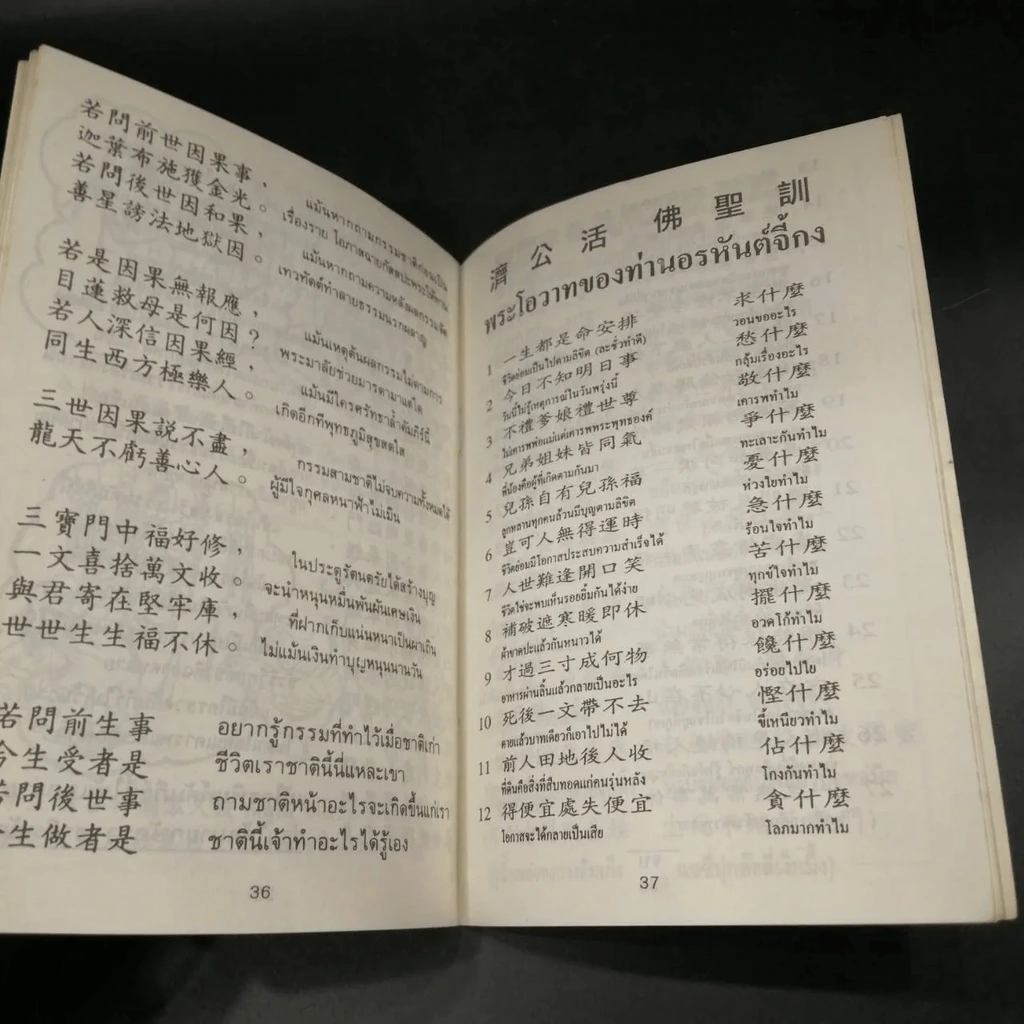 若問前世因果事，
迦葉布施獲金光。
若問後世因和果，
善星謗法地獄因。
แม้นหากถามกรรมชาติก่อนเป็น
แม้นหากถามความหลังผลกรรม
เทวทัตต์ทำลายธรรมนรกผลาญ
若是因果無報應，
目蓮救母是何因？
若人深信因果經，
同生西方極樂人。
แม้นเหตุต้นผลกรรมไม่ตามการ
พระมาลัยช่วยมารดามาแต่ใด
แม้นมีใครศรัทธาล้ำคัมภีร์นี้
เกิดอีกทีพุทธภูมิสุขสดใส
三世因果説不盡，
龍天不虧善心人。
กรรมสามชาติไม่จบความทั้งหมดได้
ผู้มีใจกุศลหนาฟ้าไม่เมิน
三寶門中福好修，
一文喜捨萬文收。
與君寄在堅牢庫，
世世生生福不休。
ในประตูรัตนตรัยได้สร้างบุญ
จะนำหนุนหมื่นพันผันเศษเงิน
ที่ฝากเก็บแน่นหนาเป็นผาเถิน
ไม่แม้นเงินทำบุญหนุนนานวัน
若問前生事 อยากรู้กรรมที่ทำไว้เมื่อชาติเก่า
今生受者是 ชีวิตเราชาตินี้นี่แหละเขา
若問後世事 ถามชาติหน้าอะไรจะเกิดขึ้นแก่เรา
今生做者是 ชาตินี้เจ้าทำอะไรได้รู้เอง
36
濟公活佛聖訓
พระโอวาทของท่านอรหันต์จี้กง
1 一生都是命安排 求什麼
ชีวิตย่อมเป็นไปตามลิขิต (ละชั่วทำดี) วอนขออะไร
2 今日不知明日事 愁什麼
วันนี้ไม่รู้เหตุการณ์ในวันพรุ่งนี้ กลุ้มเรื่องอะไร
3 不禮爹娘禮世尊 敬什麼
ไม่เคารพพ่อแม่แต่เคารพพระพุทธองค์ เคารพทำไม
4 兄弟姐妹皆同氣 爭什麼
พี่น้องคือผู้ที่เกิดตามกันมา ทะเลาะกันทำไม
5 兒孫自有兒孫福 憂什麼
ลูกหลานทุกคนล้วนมีบุญตามลิขิต ห่วงใยทำไม
6 豈可人無得運時 急什麼
ชีวิตย่อมมีโอกาสประสบความสำเร็จได้ ร้อนใจทำไม
7 人世難逢開口笑 苦什麼
ชีวิตใช่จะพบเห็นรอยยิ้มกันได้ง่าย ทุกข์ใจทำไม
8 補破遮寒暖即休 擺什麼
ผ้าขาดปะแล้วกันหนาวได้ อวดโก้ทำไม
9 才過三寸成何物 饞什麼
อาหารผ่านลิ้นแล้วกลายเป็นอะไร อร่อยไปไย
10 死後一文帶不去 慳什麼
ตายแล้วบาทเดียวก็เอาไปไม่ได้ ขี้เหนียวทำไม
11 前人田地後人收 佔什麼
ที่ดินคือสิ่งที่สืบทอดแก่คนรุ่นหลัง โกงกันทำไม
12 得便宜處失便宜 貪什麼
โอกาสจะได้กลายเป็นเสีย โลภมากทำไม
37